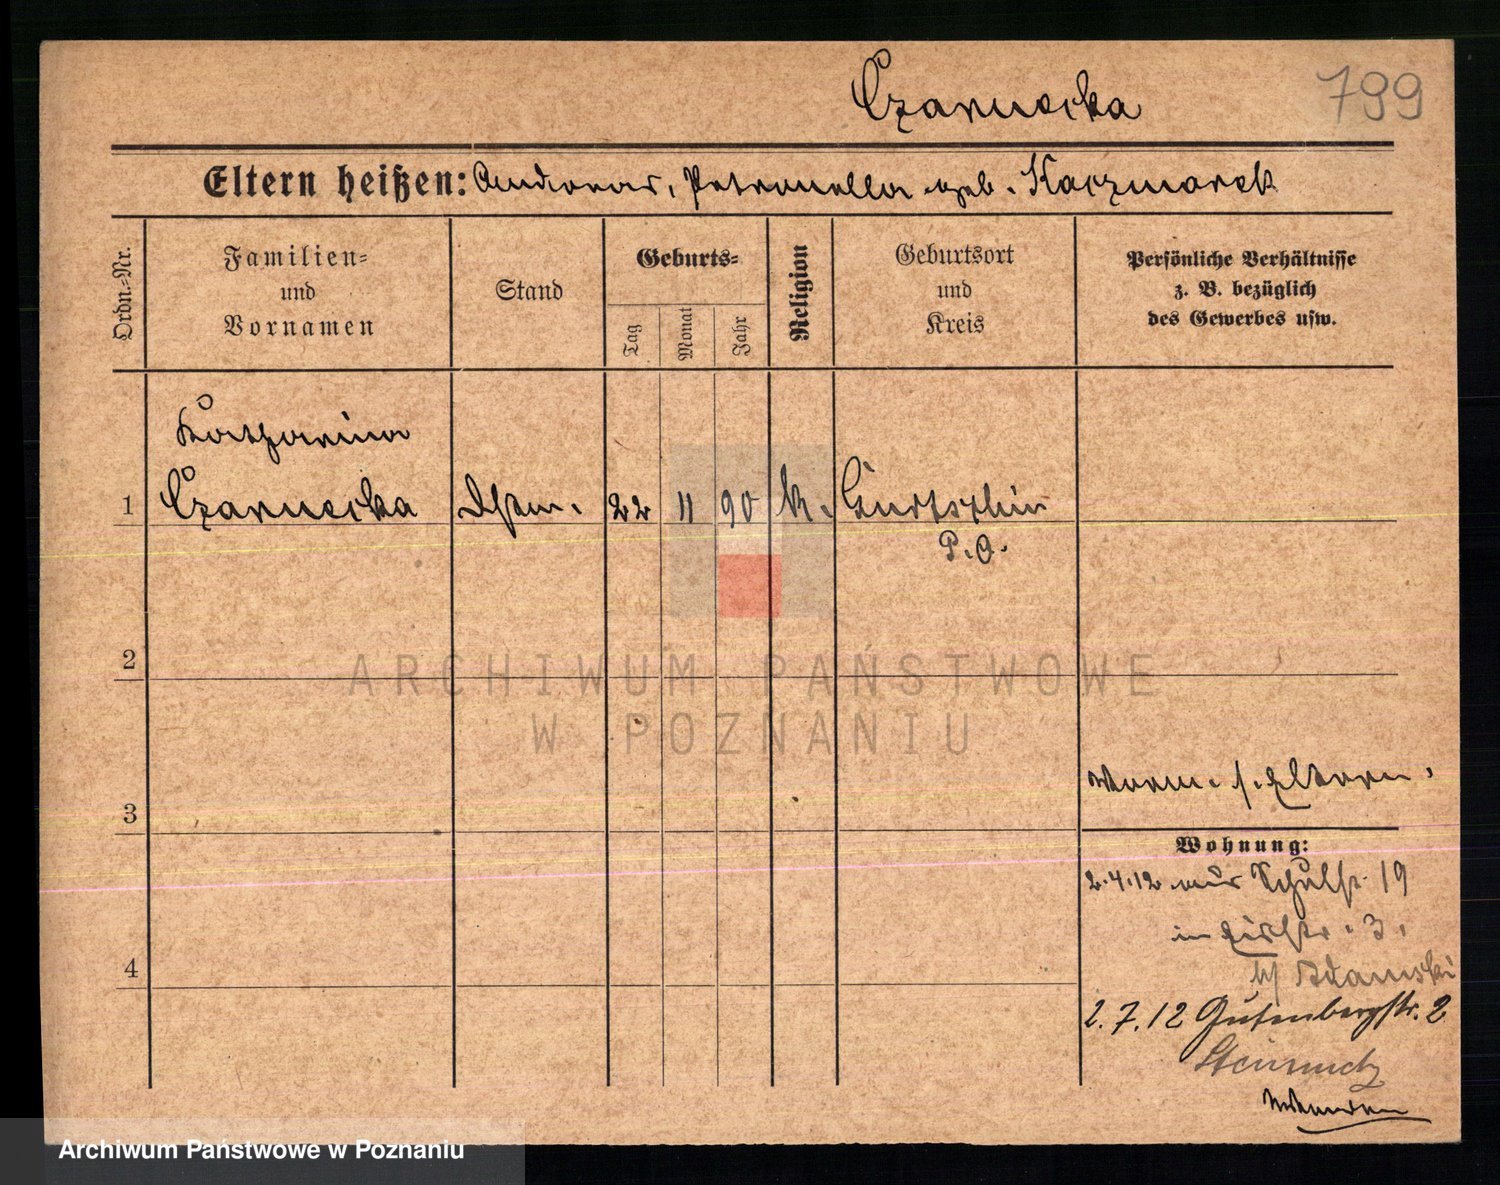 Czarnecka
799
Eltern heißen: Andreas, Petronella geb. Kaczmarek
Ordn.-Nr.
Familien-
und
Vornamen
Stand
Geburts-
Tag
Monat
Jahr
Religion
Geburtsort
und
Kreis
Persönliche Verhältnisse
z. B. bezüglich
des Gewerbes usw.
Katharina
1
Czarnecka
22
11
90
k.
Gurtschin
P. O.
2
ARCHIWUM PAŃSTWOWE
W POZNANIU
3
Eltern.
Wohnung:
2.4.12 Schulstr. 19
3.
b/ Adamski
4
2.7.12 Gutenbergstr. 2
Archiwum Państwowe w Poznaniu